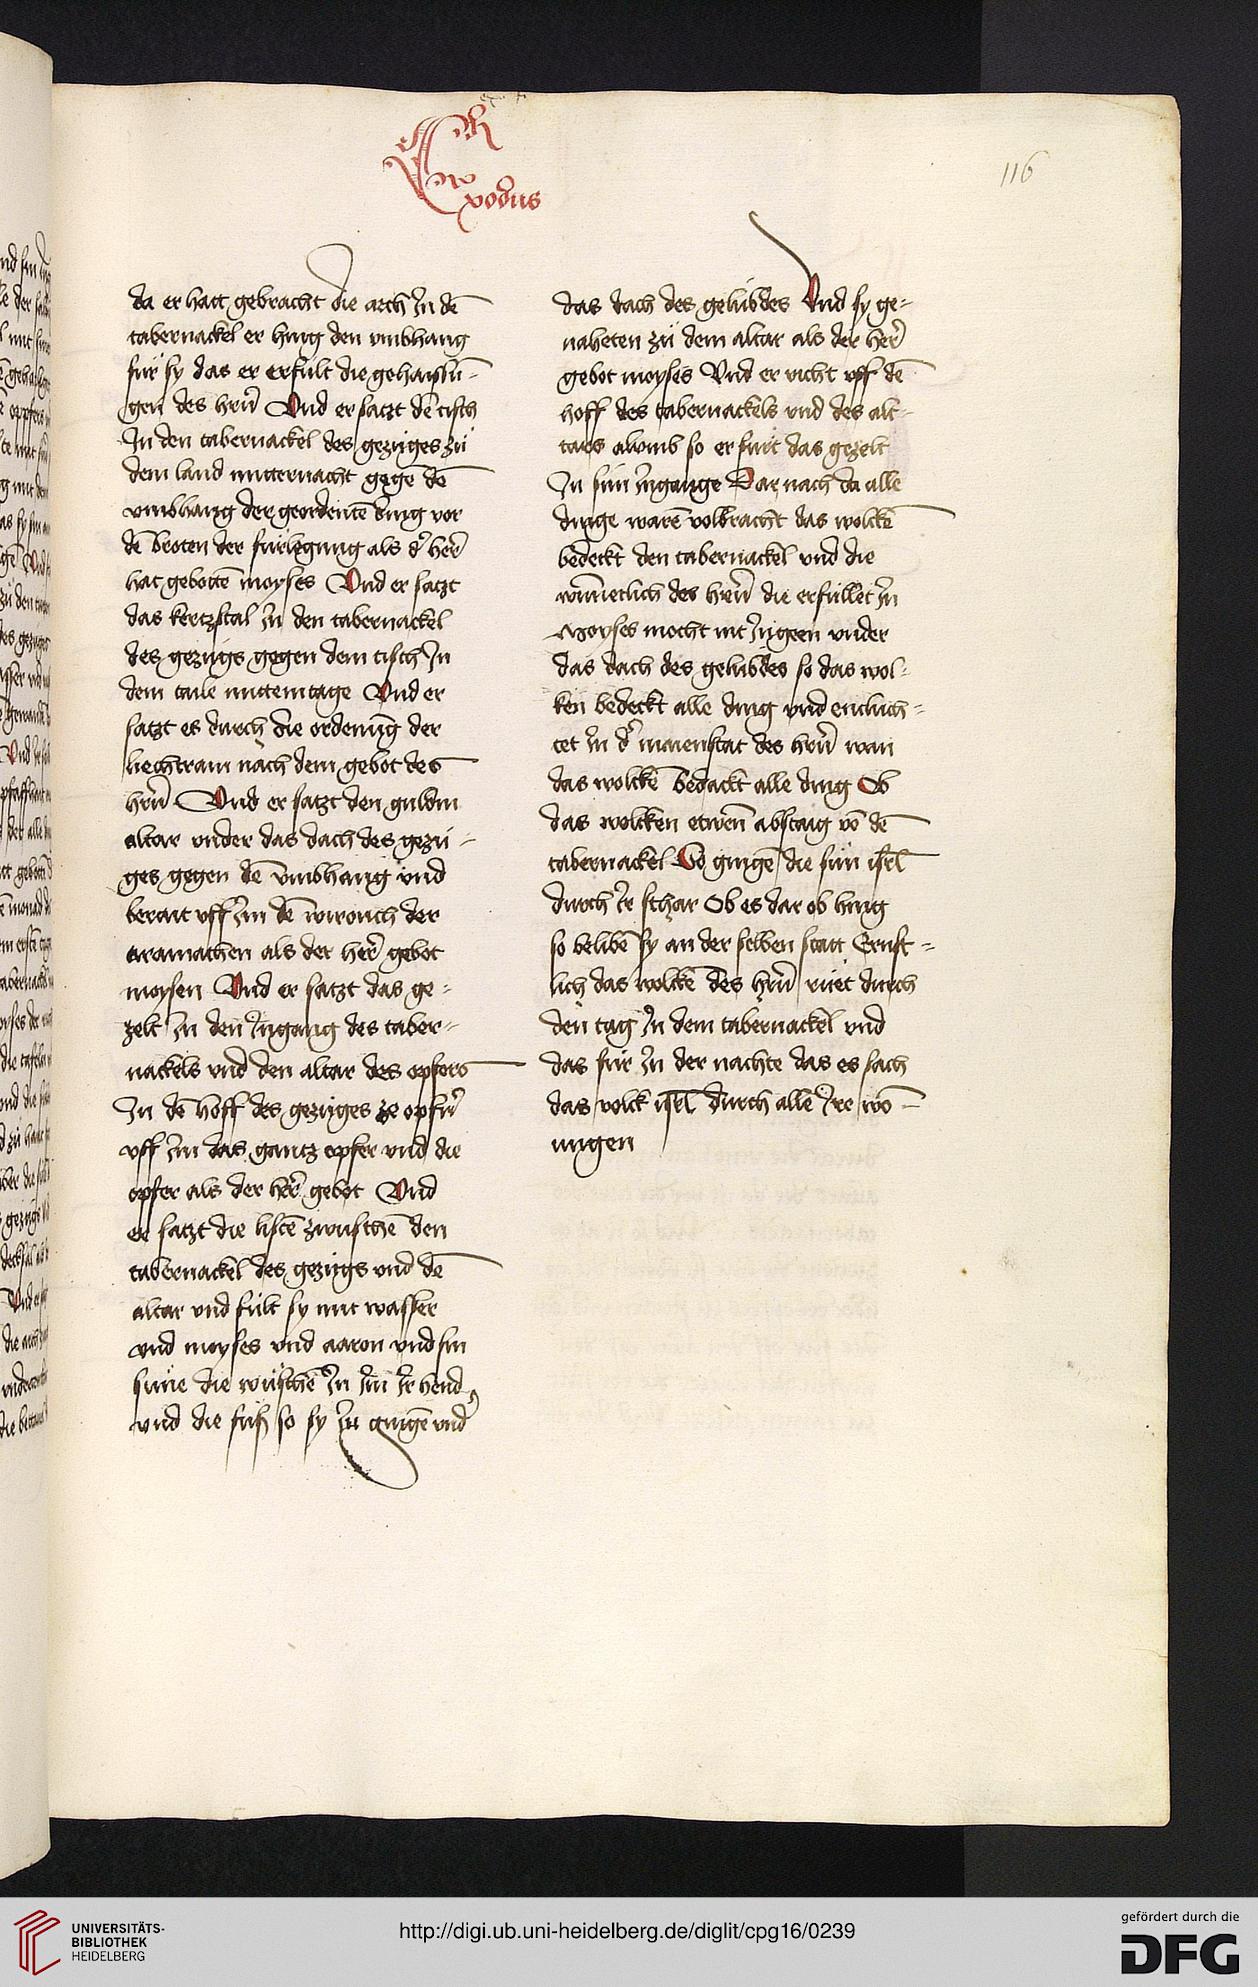 Exodus
116
da er hatt gebracht die arch Jn dē
tabernackel er hing den vmbhang
für sy das er erfült die gehaissū-
gen des hern̄ Vnd er satzt dē tisch
Jn den tabernackel des gezüges zü
dem land mitternacht gegē dē
vmbhang der geordentē ding vor
dē broten der fürlegung als d' her̄
hat gebottē moyses Vnd er satzt
das kertzstal Jn den tabernackel
des gezügs gegen dem tisch Jn
dem taile mittemtage Vnd er
satzt es durch die ordenūg der
liechtram nach dem gebot des
hern̄ Vnd er satzt den guldin
altar vnder das dach des gezü-
ges gegen dē vmbhang vnd
berait vff Jm dē wirouch der
aramathen als der her̄ gebot
moysen Vnd er satzt das ge-
zelt Jn den Jngang des taber-
nackels vnd den altar des opfers
Jn dē hoff des gezüges ze opfn'
vff Jm das gantz opfer vnd die
opfer als der her̄ gebot Vnd
er satzt die zwuschē den
tabernackel des gezügs vnd dē
altar vnd fült sy mit wasser
vnd moyses vnd aaron vnd sin
süne die wüschē Jn Jm Jr hend
vnd die füß so sy Jn gingē vnd'
das dach des gelübdes Vnd sy ge-
naheten zü dem altar als der her̄
gebot moyses Vnd er richt vff dē
hoff des tabernackels vnd des alt-
tars alvmb so er fürt das gezelt
Jn sim Jngange Dar nach da alle
dinge warē volbracht das wolckē
bedeckt den tabernackel vnd die
des hern̄ die erfüllet Jn
Moyses mocht nit Jngeen vnder
das dach des gelübdes so das wol-
ken bedeckt alle ding vnd erluch-
tet Jn d' maienstat des hern̄ wan
das wolckē bedackt alle ding Ob
das wolcken etwen̄ abstaig vō dē
tabernackel So gingē die sün isr̄l
durch Jr schar Ob es dar ob hing
so belibē sy an der selben statt Ernst-
lich das wolckē des hern̄ rüet durch
den tag Jn dem tabernackel vnd
das für Jn der nachte das es sach
das volck isr̄l durch alle Jre wo-
nungen
UNIVERSITÄTS-
BIBLIOTHEK
HEIDELBERG
http://digi.ub.uni-heidelberg.de/diglit/cpg16/0239
gefördert durch die
DFG